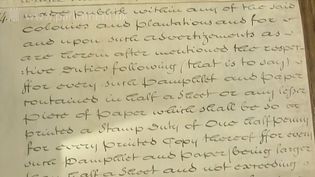 made publish within any of the said
Colonies and Plantations and for
and upon such Advertizements as
are herein after mentioned the respec
tive Duties following (that is to say)
ffor every such Pamphlet and Paper
contained in half a Sheet or any lesser
Piece of Paper which shall be so
printed a Stamp Duty of One halfpenny
for every printed Copy thereof ffor every
such Pamphlet and Paper (being larger
than half a Sheet and not exceeding